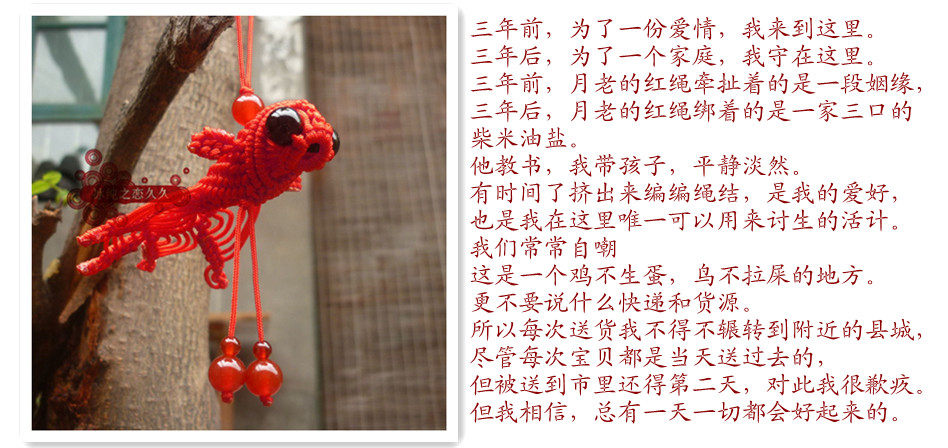 三年前，为了一份爱情，我来到这里。
三年后，为了一个家庭，我守在这里。
三年前，月老的红绳牵扯着的是一段姻缘，
三年后，月老的红绳绑着的是一家三口的
柴米油盐。
他教书，我带孩子，平静淡然。
有时间了挤出来编编绳结，是我的爱好，
也是我在这里唯一可以用来讨生的活计。
我们常常自嘲
这是一个鸡不生蛋，鸟不拉屎的地方。
更不要说什么快递和货源。
所以每次送货我不得不辗转到附近的县城，
尽管每次宝贝都是当天送过去的，
但被送到市里还得第二天，对此我很歉疚。
但我相信，总有一天一切都会好起来的。
之恋久久